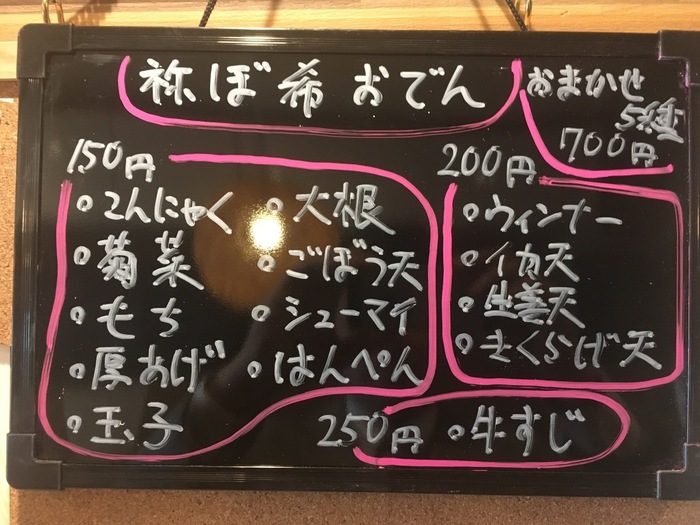 祢ぼ希おでん
おまかせ
5種
700円
150円
・こんにゃく
・菊菜
・もち
・厚あげ
・玉子
・大根
・ごぼう天
・シューマイ
・はんぺん
200円
・ウィンナー
・イカ天
・生姜天
・きくらげ天
250円 ・牛すじ